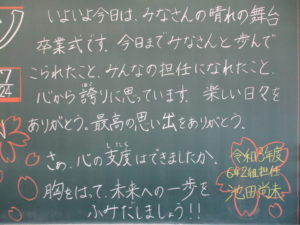 いよいよ今日は、みなさんの晴れの舞台
卒業式です。今日までみなさんと歩んで
こられたこと、みんなの担任になれたこと、
心から誇りに思っています。楽しい日々を
ありがとう。最高の思い出をありがとう。
さぁ、心の支度はできましたか。
したく
胸をはって、未来への一歩を
ふみだしましょう!!
令和3年度
6年2組担任
池田
7
24